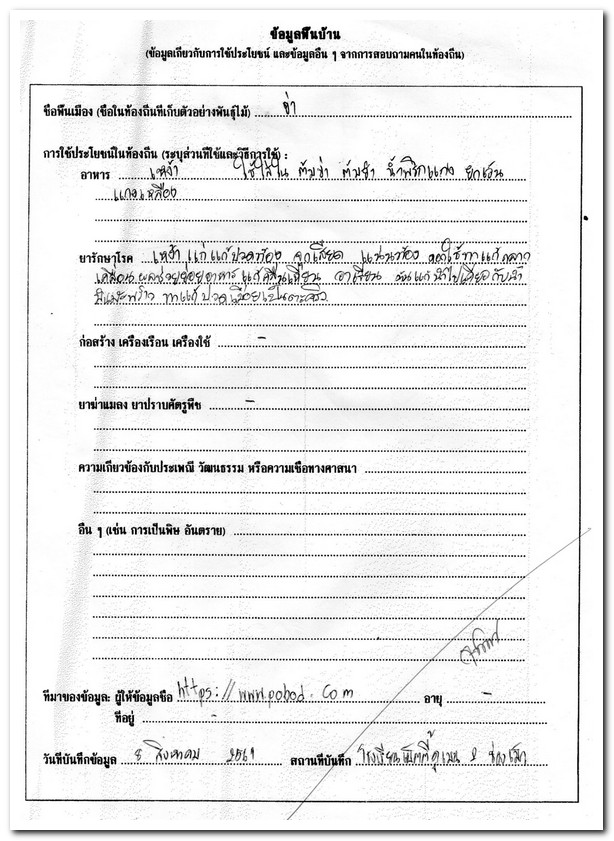 ข้อมูลพื้นบ้าน
(ข้อมูลเกี่ยวกับการใช้ประโยชน์ และข้อมูลอื่น ๆ จากการสอบถามคนในท้องถิ่น)
ชื่อพื้นเมือง (ชื่อในท้องถิ่นที่เก็บตัวอย่างพันธุ์ไม้) ข่า
การใช้ประโยชน์ในท้องถิ่น (ระบุส่วนที่ใช้และวิธีการใช้) :
อาหาร เหง้า ใช้ใส่ใน ต้มข่า ต้มยำ น้ำพริกแกง ยกเว้น
แกงเหลือง
ยารักษาโรค เหง้า แก่ แก้ปวดท้อง จุกเสียด แน่นท้อง ดอกใช้ทาแก้กลาก
เกลื้อน ผลช่วยย่อยอาหาร แก้คลื่นเหียน อาเจียน ต้นแก่ นำไปเคี่ยวกับน้ำ
มันมะพร้าว ทาแก้ปวดเมื่อยเป็นตะคริว
ก่อสร้าง เครื่องเรือน เครื่องใช้ -
ยาฆ่าแมลง ยาปราบศัตรูพืช -
ความเกี่ยวข้องกับประเพณี วัฒนธรรม หรือความเชื่อทางศาสนา
อื่น ๆ (เช่น การเป็นพิษ อันตราย)
ที่มาของข้อมูล: ผู้ให้ข้อมูลชื่อ https://www.pobod.com อายุ -
ที่อยู่ -
วันที่บันทึกข้อมูล 8 สิงหาคม 2561 สถานที่บันทึก โรงเรียน 2